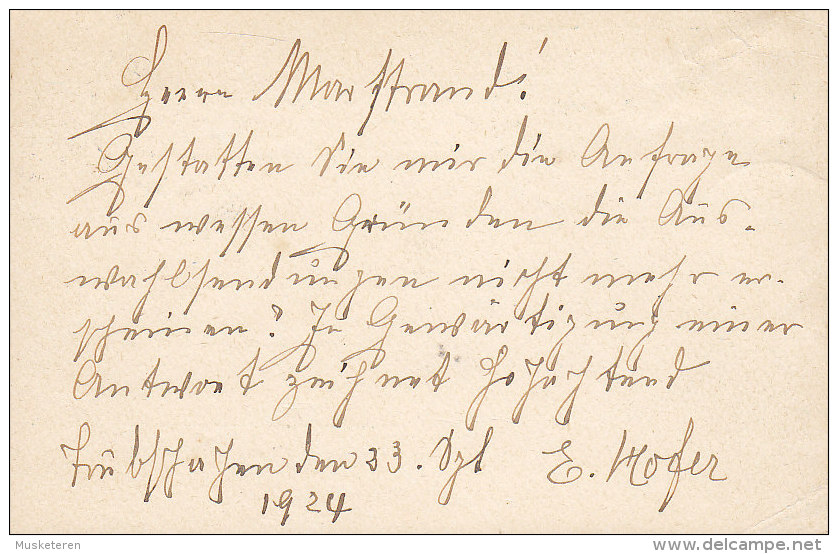 Herrn Marstrand!
Gestatten Sie mir die Anfrage
aus wessen Gründen die Aus-
wahlsendungen nicht mehr er-
scheinen? In Gewärtigung einer
Antwort zeichnet hochachtend
Trubschachen den 23. Spt E. Hofer
1924
Musketeren
delcampe.net